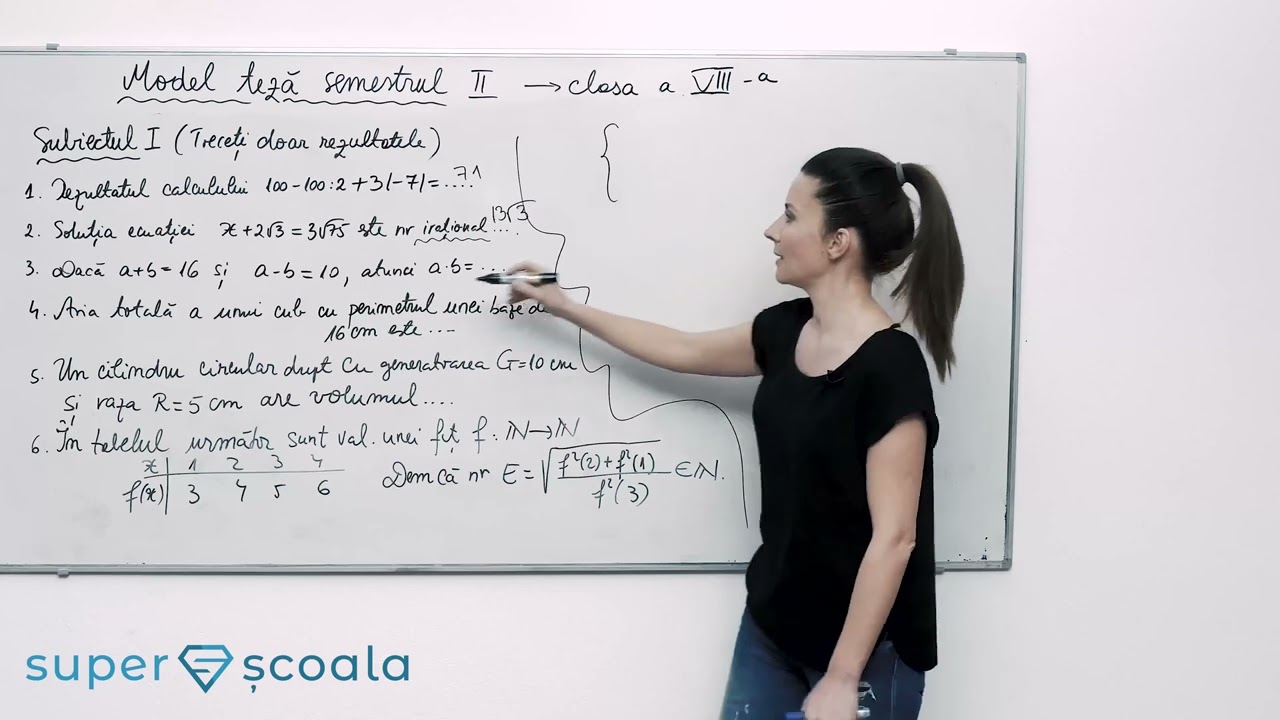 Model teză semestrul II → clasa a VIII-a
Subiectul I (Treceți doar rezultatele)
1. Rezultatul calculului 100-100:2+3|-7|=....71
2. Soluția ecuației x+2√3=3√75 este nr irațional 13√3....
3. Dacă a+b=16 și a-b=10, atunci a·b=....
4. Aria totală a unui cub cu perimetrul unei baze de
16 cm este ....
5. Un cilindru circular drept cu generatoarea G=10 cm
și raza R=5 cm are volumul....
6. În tabelul următor sunt val. unei fcț f: ℕ→ℕ
x | 1 2 3 4
f(x) | 3 4 5 6
Dem că nr E=√((f²(2)+f²(1))/f²(3)) ∈ℕ.
super școala